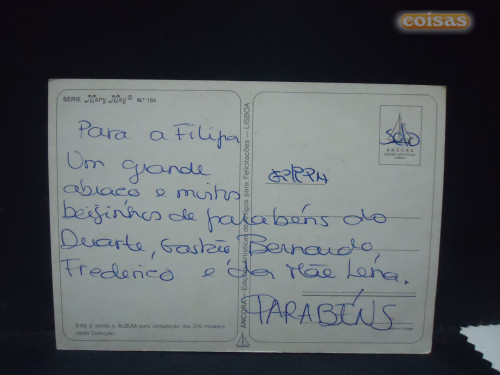 coisas
SERIE Mary May® N.º 164
Para a Filipa
Um grande
abraço e muitos
beijinhos de parabéns do
Duarte, Gastão Bernardo,
Frederico e da Mãe Lena.
PARABÉNS
Selo
ANCORA
ÂNCORA - Edições Artísticas de Artigos para Felicitações - LISBOA
Está à venda o ÁLBUM para compilação dos 216 modelos
desta Colecção.